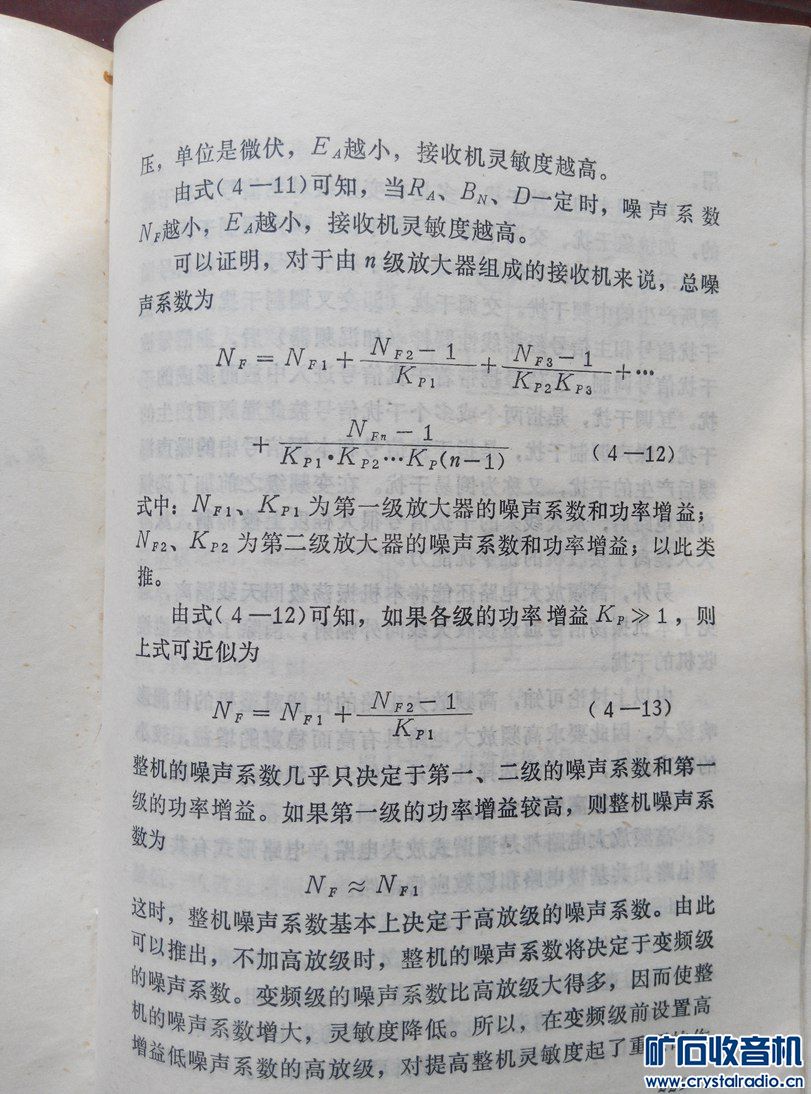 压，单位是微伏，E_A越小，接收机灵敏度越高。
由式(4—11)可知，当R_A、B_N、D一定时，噪声系数
N_F越小，E_A越小，接收机灵敏度越高。
可以证明，对于由n级放大器组成的接收机来说，总噪
声系数为
N_F = N_{F1} + \frac{N_{F2}-1}{K_{P1}} + \frac{N_{F3}-1}{K_{P2}K_{P3}} + …
+ \frac{N_{Fn}-1}{K_{P1}·K_{P2}…K_P(n-1)} (4—12)
式中：N_{F1}、K_{P1}为第一级放大器的噪声系数和功率增益；
N_{F2}、K_{P2}为第二级放大器的噪声系数和功率增益；以此类
推。
由式(4—12)可知，如果各级的功率增益K_P≫1，则
上式可近似为
N_F = N_{F1} + \frac{N_{F2}-1}{K_{P1}} (4—13)
整机的噪声系数几乎只决定于第一、二级的噪声系数和第一
级的功率增益。如果第一级的功率增益较高，则整机噪声系
数为
N_F ≈ N_{F1}
这时，整机噪声系数基本上决定于高放级的噪声系数。由此
可以推出，不加高放级时，整机的噪声系数将决定于变频级
的噪声系数。变频级的噪声系数比高放级大得多，因而使整
机的噪声系数增大，灵敏度降低。所以，在变频级前设置高
增益低噪声系数的高放级，对提高整机灵敏度起了重
矿石收音机
www.crystalradio.cn